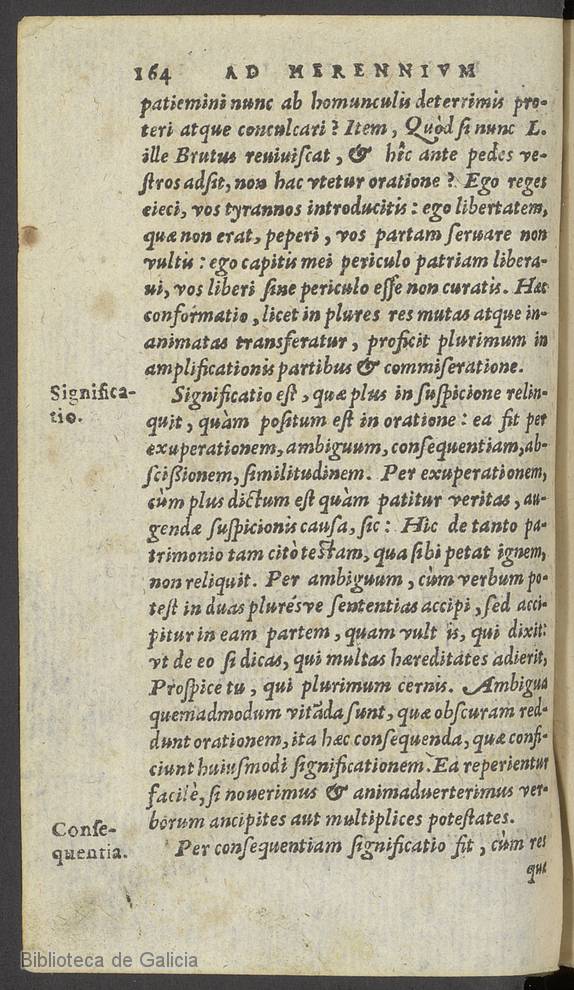 164 AD HERENNIVM
patiemini nunc ab homunculis deterrimis pro-
teri atque conculcari? Item, Quòd si nunc L.
ille Brutus reuiuiscat, & hîc ante pedes ve-
stros adsit, non hac vtetur oratione? Ego reges
eieci, vos tyrannos introducitis: ego libertatem,
quæ non erat, peperi, vos partam seruare non
vultis: ego capitis mei periculo patriam libera-
ui, vos liberi sine periculo esse non curatis. Hæc
conformatio, licet in plures res mutas atque in-
animatas transferatur, proficit plurimum in
amplificationis partibus & commiseratione.
Significa-
tio.
Significatio est, quæ plus in suspicione relin-
quit, quàm positum est in oratione: ea fit per
exuperationem, ambiguum, consequentiam, ab-
scißionem, similitudinem. Per exuperationem,
cùm plus dictum est quàm patitur veritas, au-
gendæ suspicionis causa, sic: Hic de tanto pa-
trimonio tam citò testam, qua sibi petat ignem,
non reliquit. Per ambiguum, cùm verbum po-
test in duas plurésve sententias accipi, sed acci-
pitur in eam partem, quam vult is, qui dixit:
vt de eo si dicas, qui multas hæreditates adierit,
Prospice tu, qui plurimum cernis. Ambigua
quemadmodum vitãda sunt, quæ obscuram red-
dunt orationem, ita hæc consequenda, quæ confi-
ciunt huiusmodi significationem. Ea reperientur
facilè, si nouerimus & animaduerterimus ver-
borum ancipites aut multiplices potestates.
Conse-
quentia.
Per consequentiam significatio fit, cùm res
quæ
Biblioteca de Galicia